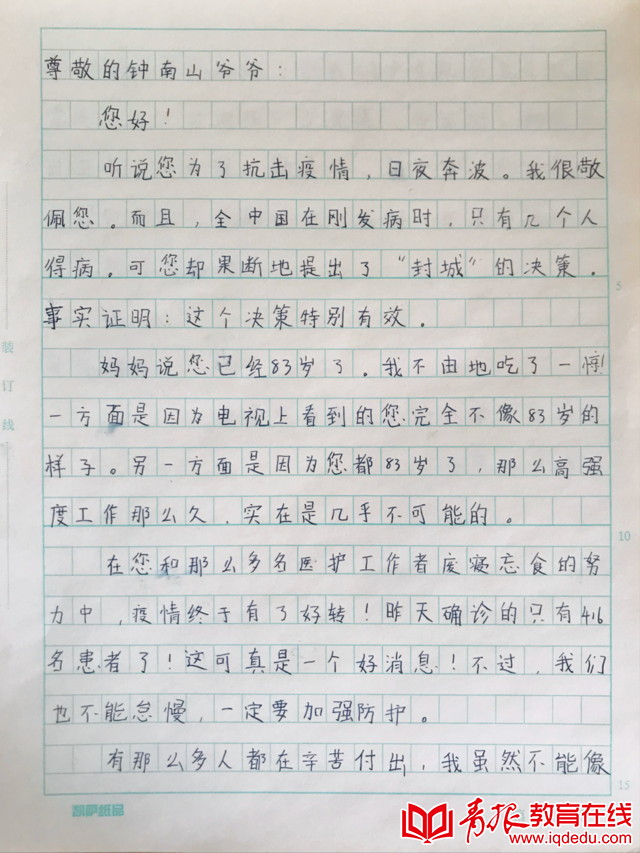 尊敬的钟南山爷爷：
您好！
听说您为了抗击疫情，日夜奔波。我很敬
佩您。而且，全中国在刚发病时，只有几个人
得病。可您却果断地提出了“封城”的决策。
事实证明：这个决策特别有效。
妈妈说您已经83岁了。我不由地吃了一惊！
一方面是因为电视上看到的您完全不像83岁的
样子。另一方面是因为您都83岁了，那么高强
度工作那么久，实在是几乎不可能的。
在您和那么多名医护工作者废寝忘食的努
力中，疫情终于有了好转！昨天确诊的只有416
名患者了！这可真是一个好消息！不过，我们
也不能怠慢，一定要加强防护。
有那么多人都在辛苦付出，我虽然不能像
装订线
5
10
15
凯萨纸品
青报教育在线
www.iqdedu.com